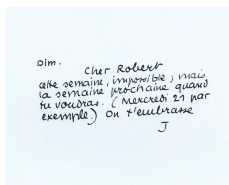 Dim.
Cher Robert
cette semaine, impossible ; mais
la semaine prochaine quand
tu voudras. (Mercredi 21 par
exemple.) On t'embrasse
J